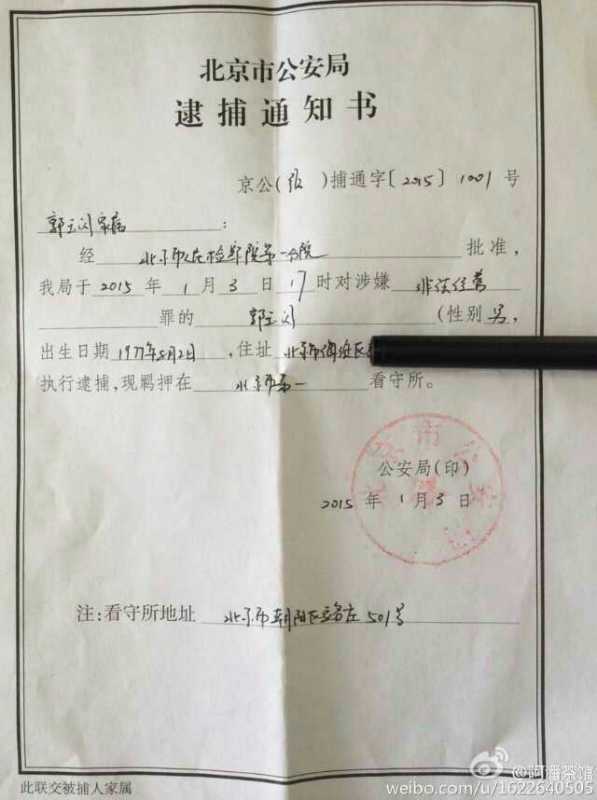 北京市公安局
逮捕通知书
京公(预)捕通字〔2015〕1001号
郭玉闪家属:
经 北京市人民检察院第一分院 批准,
我局于 2015 年 1 月 3 日 17 时对涉嫌 非法经营
罪的 郭玉闪 (性别 男,
出生日期 1977年5月2日,住址 北京市海淀区
执行逮捕,现羁押在 北京市第一 看守所。
公安局(印)
2015 年 1 月 3 日
注:看守所地址 北京市朝阳区豆各庄501号
此联交被捕人家属
@阿潘茶馆
weibo.com/u/1622640505